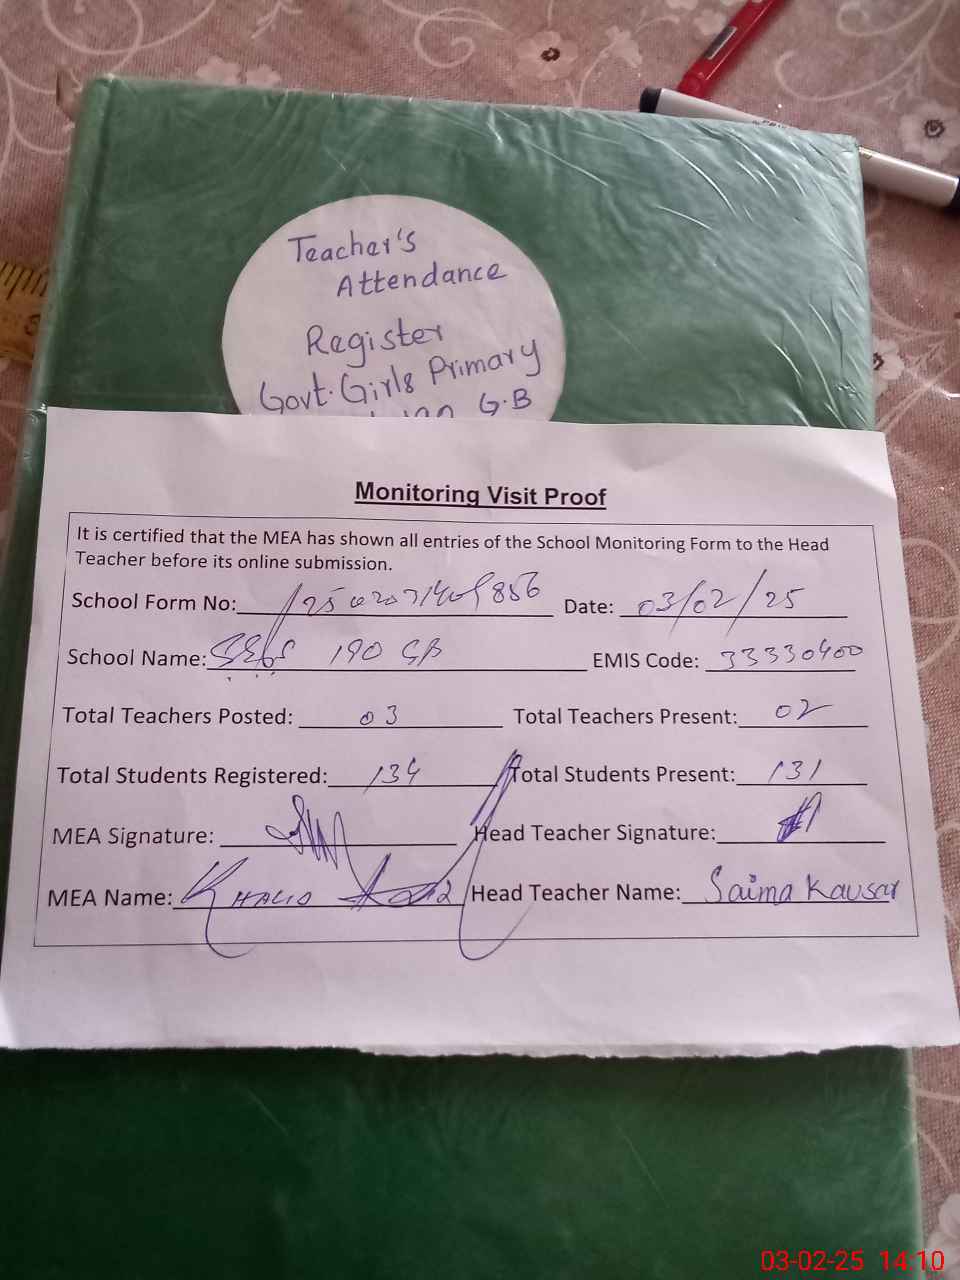 Teacher's
Attendance
Register
Govt. Girls Primary
G.B
Monitoring Visit Proof
It is certified that the MEA has shown all entries of the School Monitoring Form to the Head
Teacher before its online submission.
School Form No: Date: 03/02/25
School Name: 190 GB EMIS Code: 33330400
Total Teachers Posted: 03 Total Teachers Present: 02
Total Students Registered: 134 Total Students Present: 131
MEA Signature: Head Teacher Signature:
MEA Name: KHALID Head Teacher Name: Saima Kausar
03-02-25 14:10